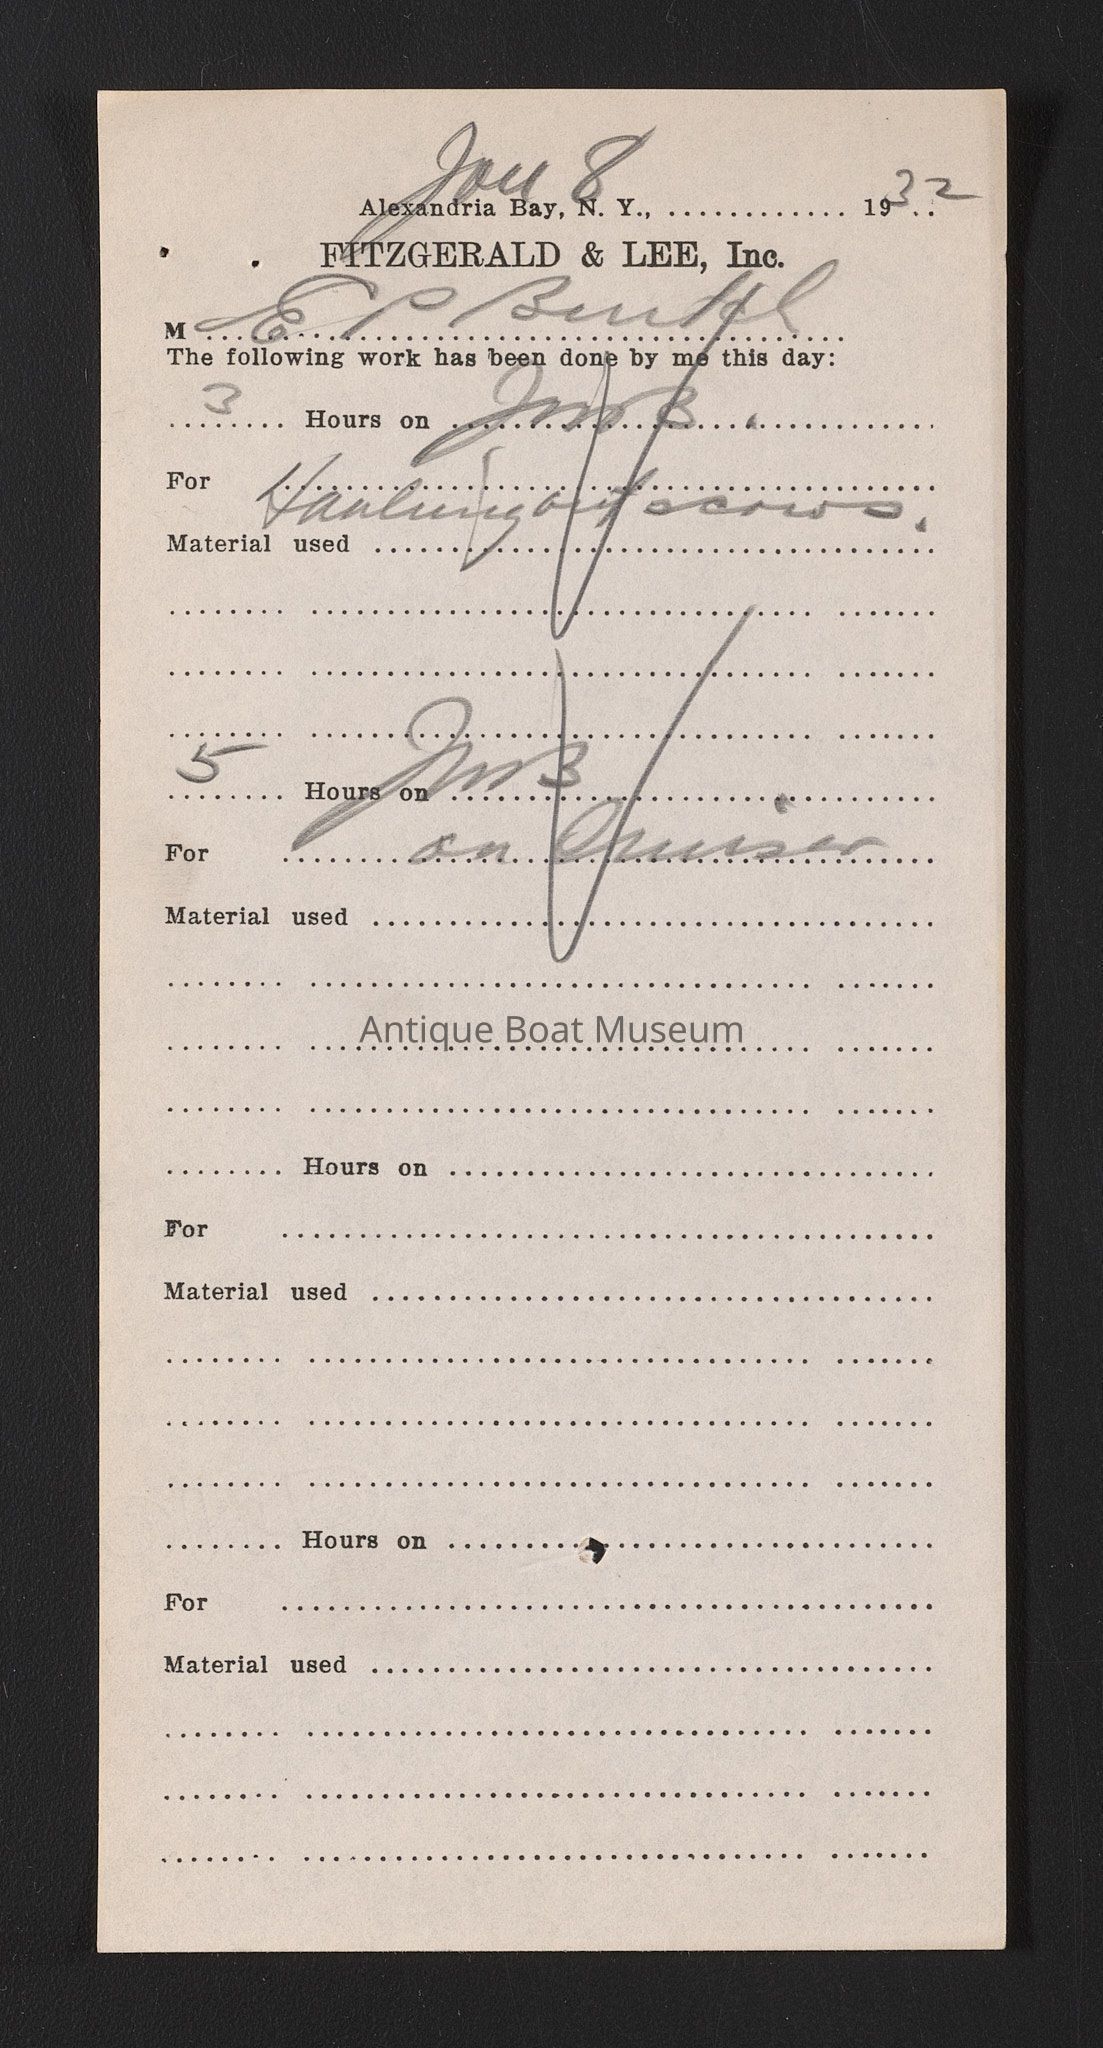 Jan 8
Alexandria Bay, N. Y., ............ 1932
FITZGERALD & LEE, Inc.
M E P
The following work has been done by me this day:
3 Hours on
For Hauling out scows.
Material used
5 Hours on
For on Cruiser
Material used
Antique Boat Museum
Hours on
For
Material used
Hours on
For
Material used